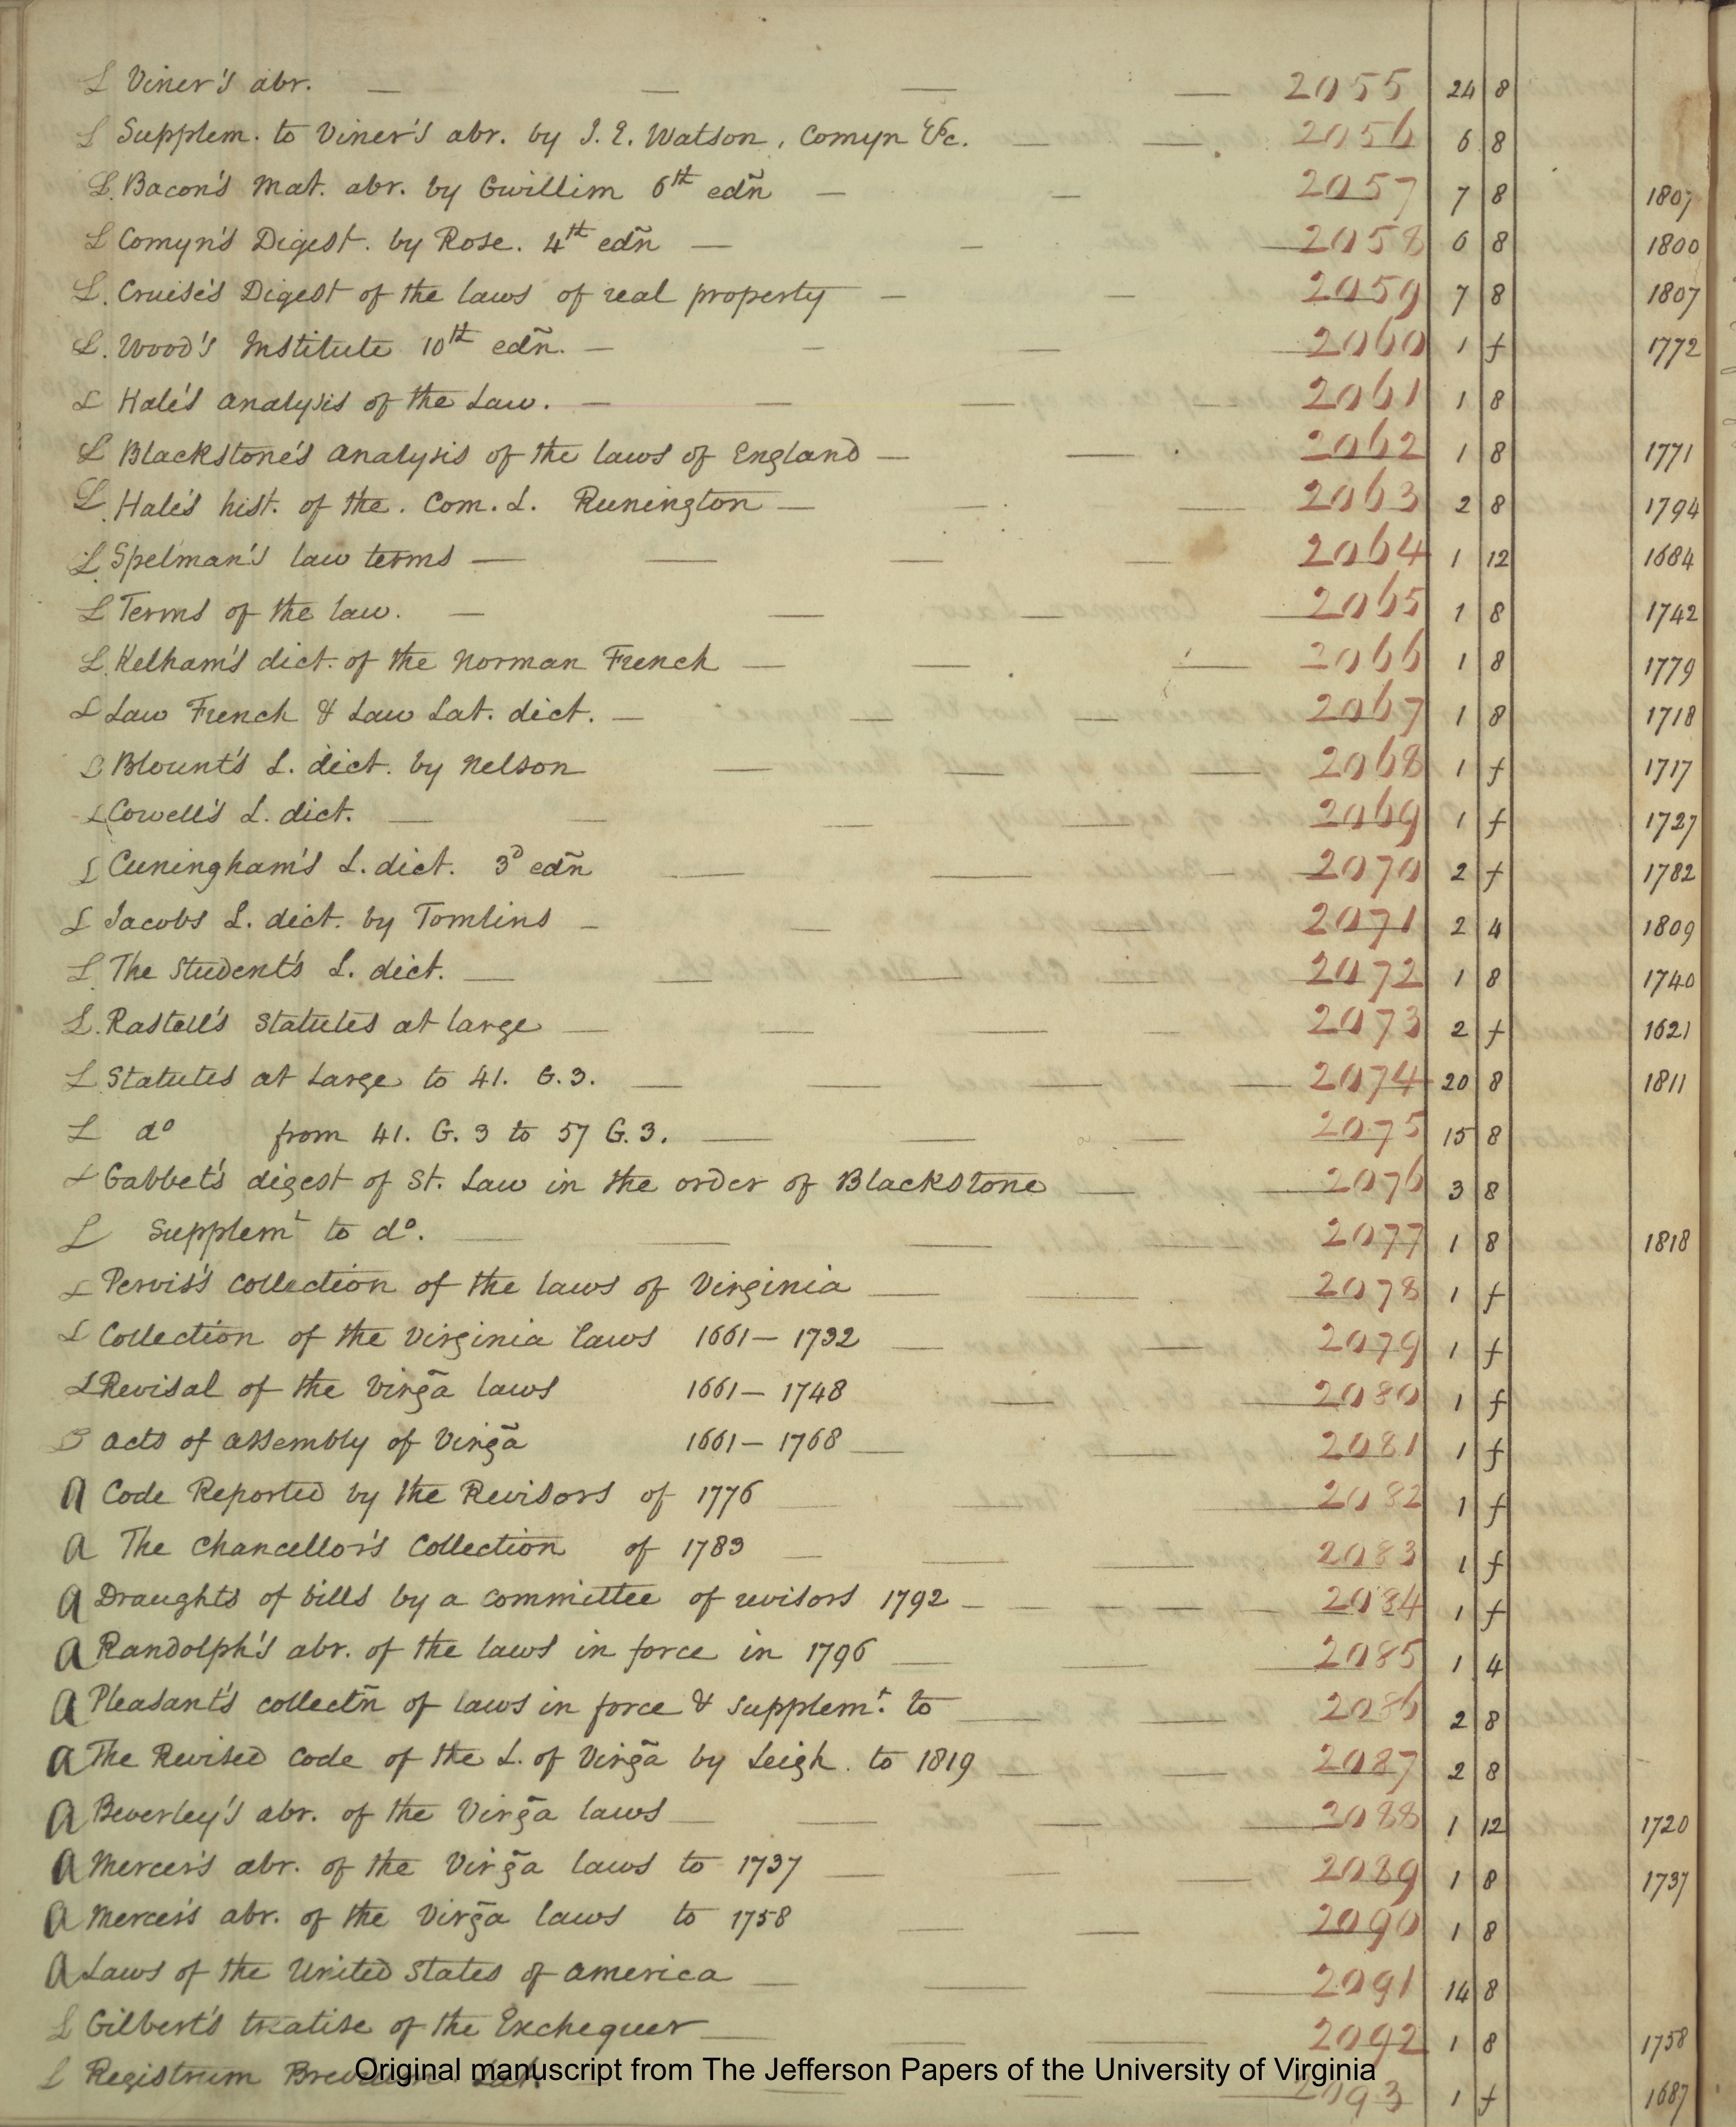 L Viner's abr. — — — — 2055 24 8
L Supplem. to Viner's abr. by J. E. Watson, Comyn &c. — — 2056 6 8
L. Bacon's Mat. abr. by Gwillim 6th edñ — — 2057 7 8 1807
L Comyn's Digest. by Rose. 4th edñ — — — 2058 6 8 1800
L. Cruise's Digest of the laws of real property — — 2059 7 8 1807
L. Wood's Institute 10th edñ. — — — — 2060 1 f 1772
L Hale's analysis of the Law. — — — — 2061 1 8
L Blackstone's analysis of the laws of England — — 2062 1 8 1771
L. Hale's hist. of the. Com. L. Runington — — — 2063 2 8 1794
L. Spelman's law terms — — — — 2064 1 12 1684
L Terms of the law. — — — — 2065 1 8 1742
L. Kelham's dict. of the Norman French — — — 2066 1 8 1779
L Law French & Law Lat. dict. — — — 2067 1 8 1718
L Blount's L. dict. by Nelson — — — 2068 1 f 1717
L Cowell's L. dict. — — — — 2069 1 f 1727
L Cuningham's L. dict. 3d edñ — — — 2070 2 f 1782
L Jacobs L. dict. by Tomlins — — — 2071 2 4 1809
L. The Student's L. dict. — — — — 2072 1 8 1740
L. Rastell's Statutes at large — — — — 2073 2 f 1621
L Statutes at Large to 41. G.3. — — — — 2074 20 8 1811
L do from 41. G. 3 to 57 G. 3. — — — 2075 15 8
L Gabbet's digest of St. Law in the order of Blackstone — — 2076 3 8
L Supplemt to do. — — — — 2077 1 8 1818
L Pervis's collection of the laws of Virginia — — — 2078 1 f
L Collection of the Virginia laws 1661 — 1732 — — 2079 1 f
L Revisal of the Virg̃a laws 1661 — 1748 — — 2080 1 f
acts of assembly of Virg̃a 1661 — 1768 — — 2081 1 f
a Code Reported by the Revisors of 1776 — — — 2082 1 f
a The Chancellor's Collection of 1783 — — — 2083 1 f
a Draughts of bills by a committee of revisors 1792 — — — — — 2084 1 f
a Randolph's abr. of the laws in force in 1796 — — — 2085 1 4
a Pleasant's collectñ of laws in force & supplemt. to — — 2086 2 8
a The Revised Code of the L. of Virg̃a by Leigh. to 1819 — — 2087 2 8
a Beverley's abr. of the Virg̃a laws — — — — 2088 1 12 1720
a Mercer's abr. of the Virg̃a laws to 1737 — — — 2089 1 8 1737
a Mercer's abr. of the Virg̃a laws to 1758 — — — 2090 1 8
a Laws of the United States of america — — — 2091 14 8
L Gilbert's treatise of the Exchequer — — — 2092 1 8 1758
L Registrum 2093 1 f 1687
Original manuscript from The Jefferson Papers of the University of Virginia